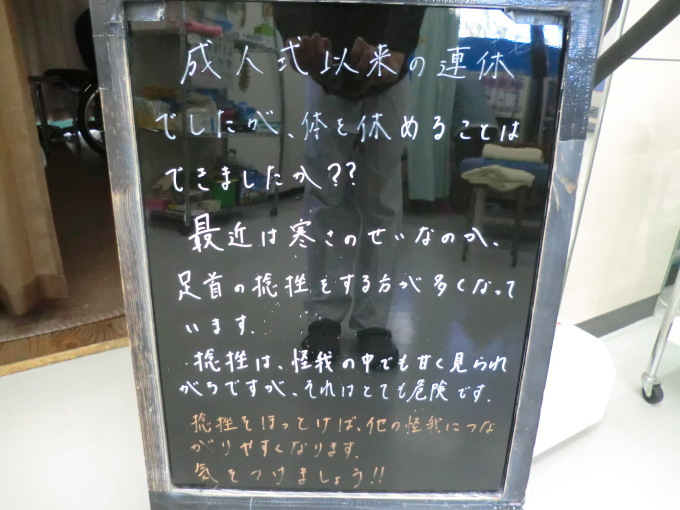 成人式以来の連休
でしたが、体を休めることは
できましたか??
最近は寒さのせいなのか、
足首の捻挫をする方が多くなって
います.
捻挫は、怪我の中でも甘く見られ
がちですが、それはとても危険です.
捻挫をほっとけば、他の怪我につな
がりやすくなります.
気をつけましょう!!